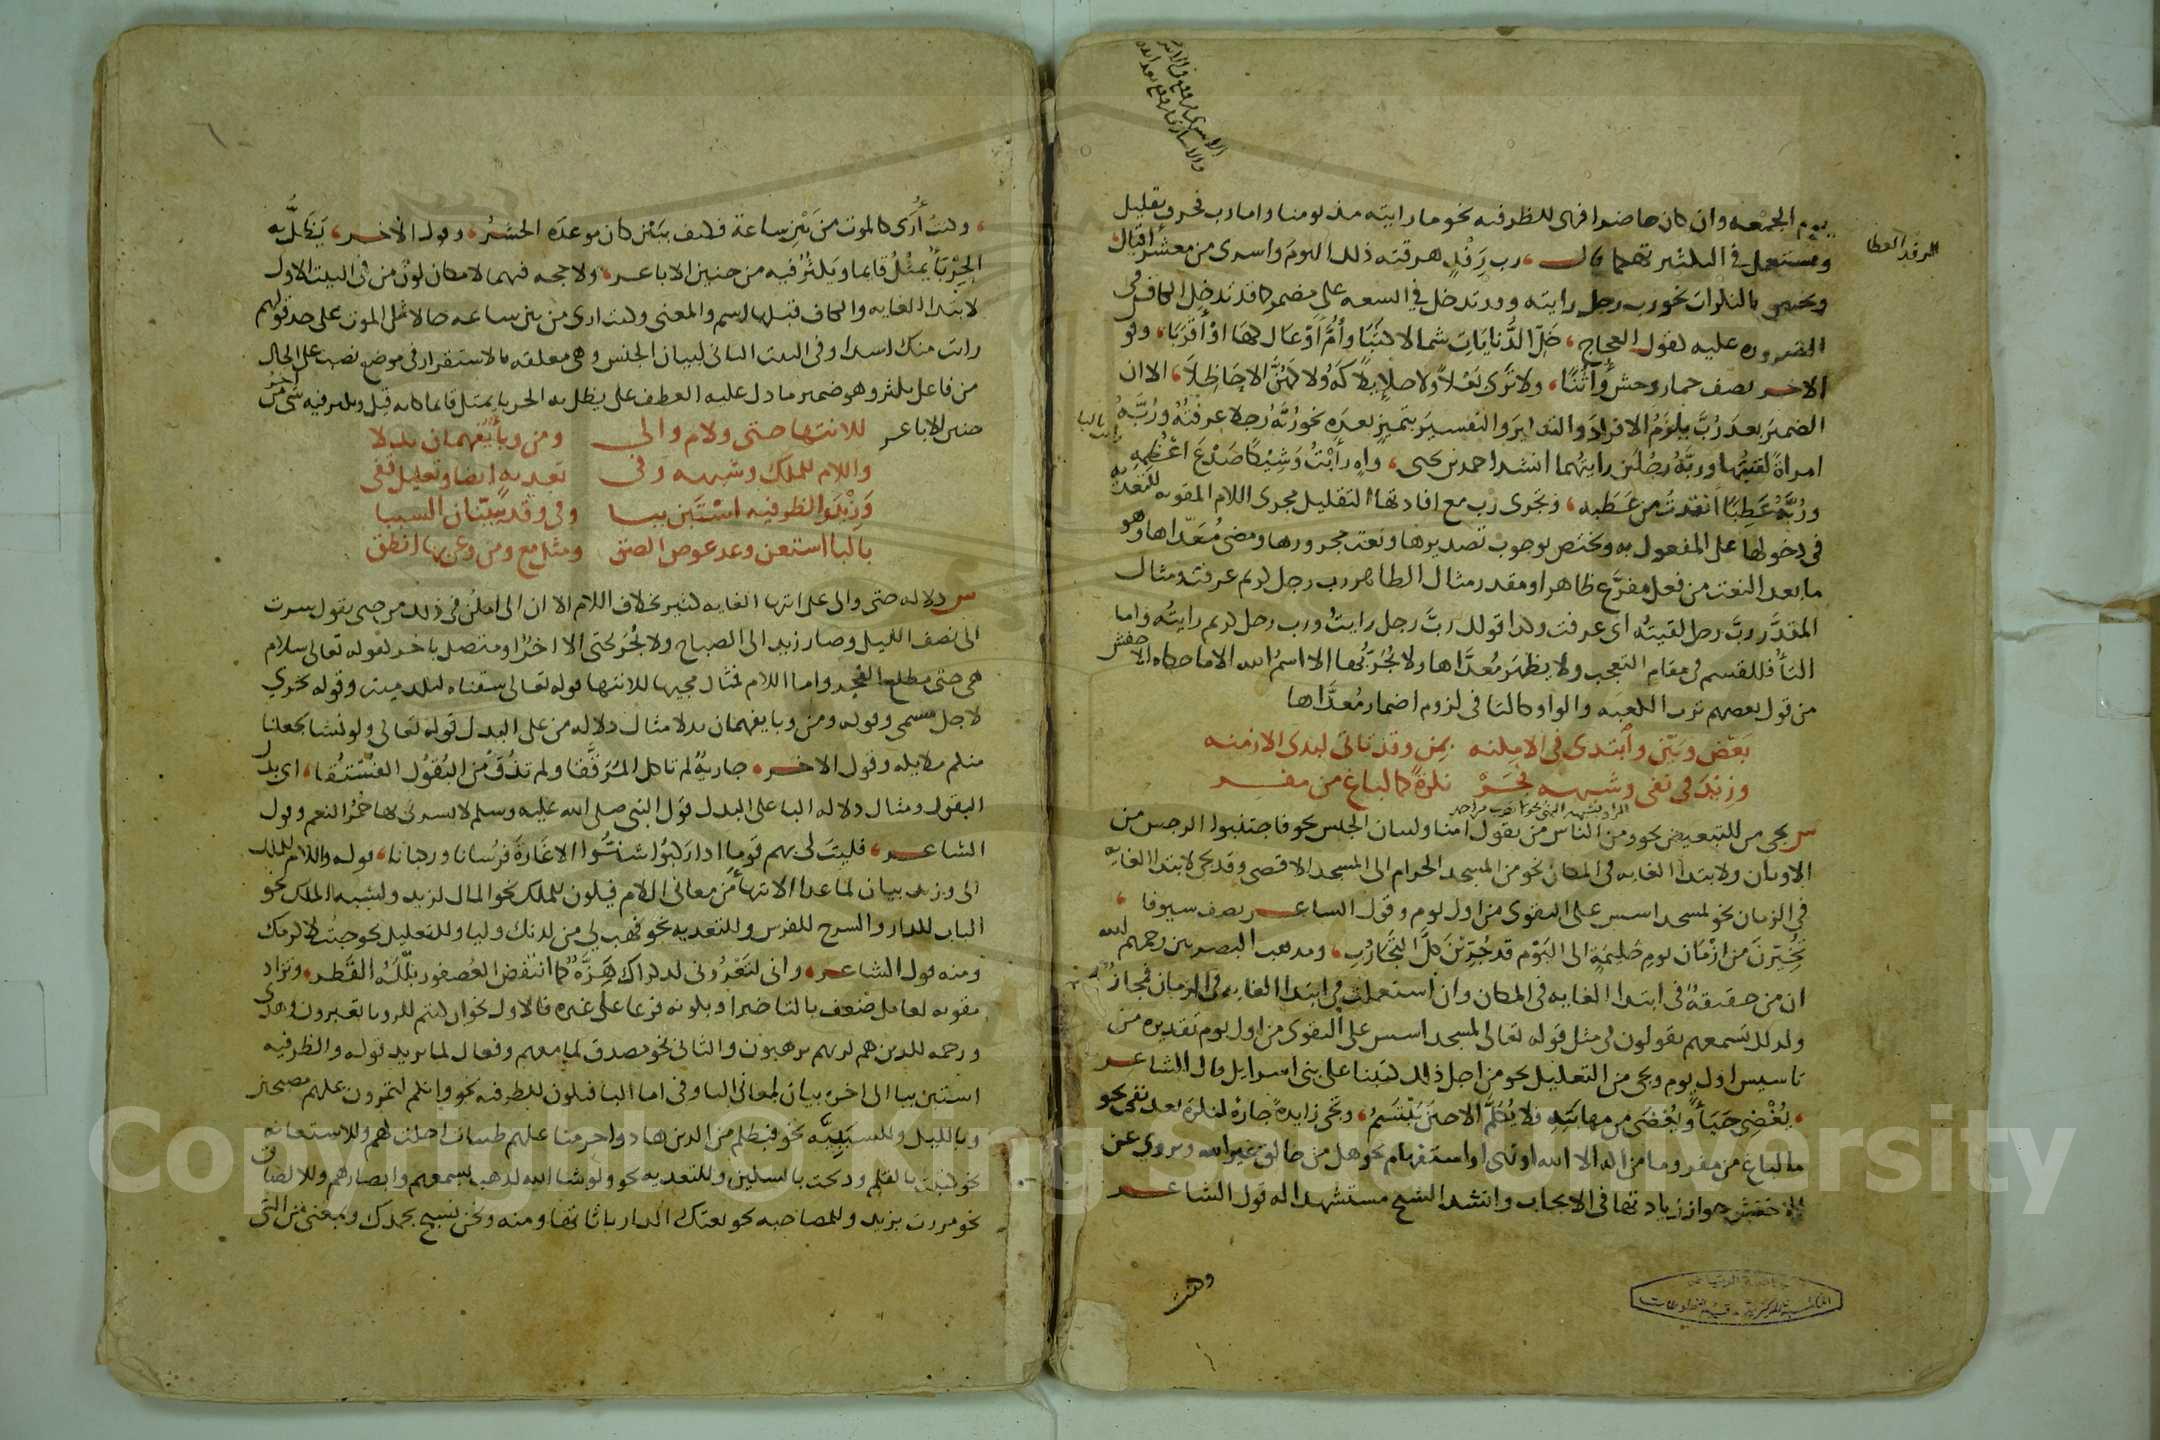 يوم الجمعه وان كان حاضرا فهى للظرفيه نحو ما رايته مذ يومنا واما رب فحرف تقليل
ويستعمل في التكثير تهكما قال رب رَفْدٍ هرقته ذلك اليومَ واسرى من معشر اقيال
ويختص بالنكرات نحو رب رجل رايته وقد تدخل في السعه على مضمر كما قد تدخل الكاف في
الضروره عليه كقول العجاج خلّى الذُّنابَاتِ شمالا كَثَبَا وأُمَّ أَوْعَالٍ كَهَا اوْ أَقْرَبَا وقول
الاخر يصف حمار وحش وأُتُنًا ولا تَرى بَعْلاً ولا حلايلاً كَهُ ولا كَهُنَّ الا حاظلاً الا ان
الضميرَ بعد رُبَّ يلزمُ الافرادَ والتذكيرَ والتفسيرَ بتمييزٍ بعده نحو رُبَّه رجلا عرفتُه ورُبَّه
امراة لقيتُها وربَّهُ رجُلَين رايتُهما انشد احمد بن يحيى واهٍ رأَبْتُ وَشِيكًا صَدْعَ اعْظُمِهِ
ورُبَّهُ عَطِبًا انقذتُ من عَطَبِه وتجرى رُب مع افادتها التقليل مجرى اللام المقويه للتعديه
في دخولها على المفعول به وتختص بوجوب تصديرها ونعت مجرورها ومضى مُعَدّاها وهو
ما بعد النعت من فعل مفرَّع ظاهر او مقدر مثال الظاهر رب رجل كريم عرفت ومثال
المقدَّر ربَّ رجل لقيتُه اى عرفت وكذا قولك ربَّ رجل رايتُ ورب رجل كريم رايتُه واما
التأُ فللقسم في مقام التعجب ولا يظهر مُعدَّاها ولا تُجَرّ بها الا اسمُ الله الا ما حكاه الاخفش
من قول بعضهم ترب الكعبه والواو كالتا في لزوم اضمار مُعدَّاها
بَعِّضْ وبَيِّن وابْتَدى في الامكنه بِمِن وقد تاتى لبدى الازمنه
وزِيْدَ في نفى وشبهه فَجَرّ نكرَةً كما لباغ من مفر
س يجى من للتبعيض نحو ومن الناس من يقول امنا ولبيان الجنس نحو فاجتنبوا الرجس من
الاوثان ولابتدا الغايه في المكان نحو من المسجد الحرام الى المسجد الاقصى وقد يجى لابتدا الغايه
في الزمان نحو لمسجد اسس على التقوى من اول يوم وقول الشاعر يصف سيوفا
تُخُيِّرنَ من ازْمَان يومِ حَلِيمَةٍ الى اليَوْم قد جُرِّبْنَ كُلَّ التجَارُبِ ومذهب البصريين رحمهم الله
ان من حقيقهٌ في ابتدا الغايه في المكان وان استعملت في ابتدا الغايه في الزمان فمجازٌ
ولذلك تسمعهم يقولون في مثل قوله تعالى لمسجد اسس على التقوى من اول يوم تقديره من
تاسيس اول يوم ويجى من التعليل نحو من اجل ذلك كتبنا على بنى اسرايل وقال الشاعر
يُغْضِى حَيَاءً ويُغْضَى من مهابَتِهِ فلا يُكَلَّمُ الا حينَ يَبْتَسِمُ وتجى زايدةً جارةً لنكرة بعد نفى نحو
ما لباغ من مفر وما من اله الا الله او نهى او استفهام نحو هل من خالق غير الله ويروى عن
الاخفش جواز زيادتها في الايجاب وانشد الشيخ مستشهدا له قول الشاعر
وكنت
الرفد العطا
وكنتُ أُرَى كالموت من بَيْنِ ساعة فكيف ببَيْن كان موعدَه الحشرُ وقول الاخر يَظَلُّ به
الحِرْبَأُ يَمْثُلُ قايما ويَكثُرُ فيه من حنينِ الاباعر ولا حجه فيهما لامكان كونِ من في البيت الاول
لابتدا الغايه والكاف قبلها اسم والمعنى وكنت ارى من بين ساعه حالا مثل الموت على حد قولهم
رايت منك اسدا وفي البيت الثانى لبيان الجنس وهى معلقه بالاستقرار في موضع نصب على الحال
من فاعل يكثر وهو ضمير ما دل عليه العطف على يظل به الحربا يمثل قايما كانه قيل ويكثر فيه شى آخرُ من
حنين الاباعر
للانتها حتى ولام والى ومن وبأٌ يُفهمان بدلا
واللام للملك وشبهه وفي تعديه ايضا وتعليل قفى
وَزِيْدَ والظرفيه اسْتَبِن ببا وفي وقد يبيّنان السببا
بالبا استعن وعد عوض الصق ومثل مع ومن وعن بها انطق
س دلاله حتى والى على انتها الغايه كثير بخلاف اللام الا ان الى امكن في ذلك من حتى يقول سرت
الى نصف الليل وصار زيد الى الصباح ولا يُجَر بحتى الا اخرٌ او متصل باخر كقوله تعالى سلام
هى حتى مطلع الفجر واما اللام فمثال مجيها للانتها قوله تعالى سقناه لبلد ميت وقوله تجري
لاجل مسمى وقوله ومن وبا يفهمان بدلا مثال دلاله من على البدل قوله تعالى ولو نشا لجعلنا
منكم ملايكه وقول الاخر جاريةٌ لم تاكل المُرَقَّقَا ولم تذُقْ من البُقولِ الفُسْتُقَا اى بدل
البقول ومثال دلاله البا على البدل قول النبى صلى الله عليه وسلم لا يسرنى بها حُمْرُ النعم وقول
الشاعر فليتَ لى بهم قوما اذا ركبُوا شنُّوا الاغارَةَ فرْسَانا وركبانا قوله واللام للملك
الى وزيد بيان لما عدا الانتهأ من معانى اللام فيكون للملك نحو المال لزيد ولشبه الملك نحو
الباب للدار والسرج للفرس وللتعديه نحو فهب لي من لدنك وليا وللتعليل نحو جيتُ لاكرمك
ومنه قول الشاعر وانى لتَعْرُونى لذكراك هَزَّةٌ كما انتفض العُصفورُ بلّلَهُ القَطْرُ وتزاد
مقويه لعامل ضعف بالتاخير او بكونه فرعا على غيره فالاول نحو ان كنتم للرويا تعبرون وهدى
ورحمه للذين هم لربهم يرهبون والثانى نحو مصدق لما معهم وفعال لما يريد قوله والظرفيه
استبن ببا الى اخره بيان لمعانى البا وفي اما البا فيكون للظرفيه نحو وانكم لتمرون عليهم مصبحين
وبالليل وللسببيّه نحو فبظلم من الذين هادوا حرمنا عليهم طيبات احلت لهم وللاستعانه
نحو كتبت بالقلم وذبحت بالسكين وللتعديه نحو ولو شا الله لذهب بسمعهم وابصارهم وللالصاق
نحو مررت بزيد وللمصاحبه نحو بعتك الدار باثاثها ومنه ونحن نسبح بحمدك وبمعنى من التى